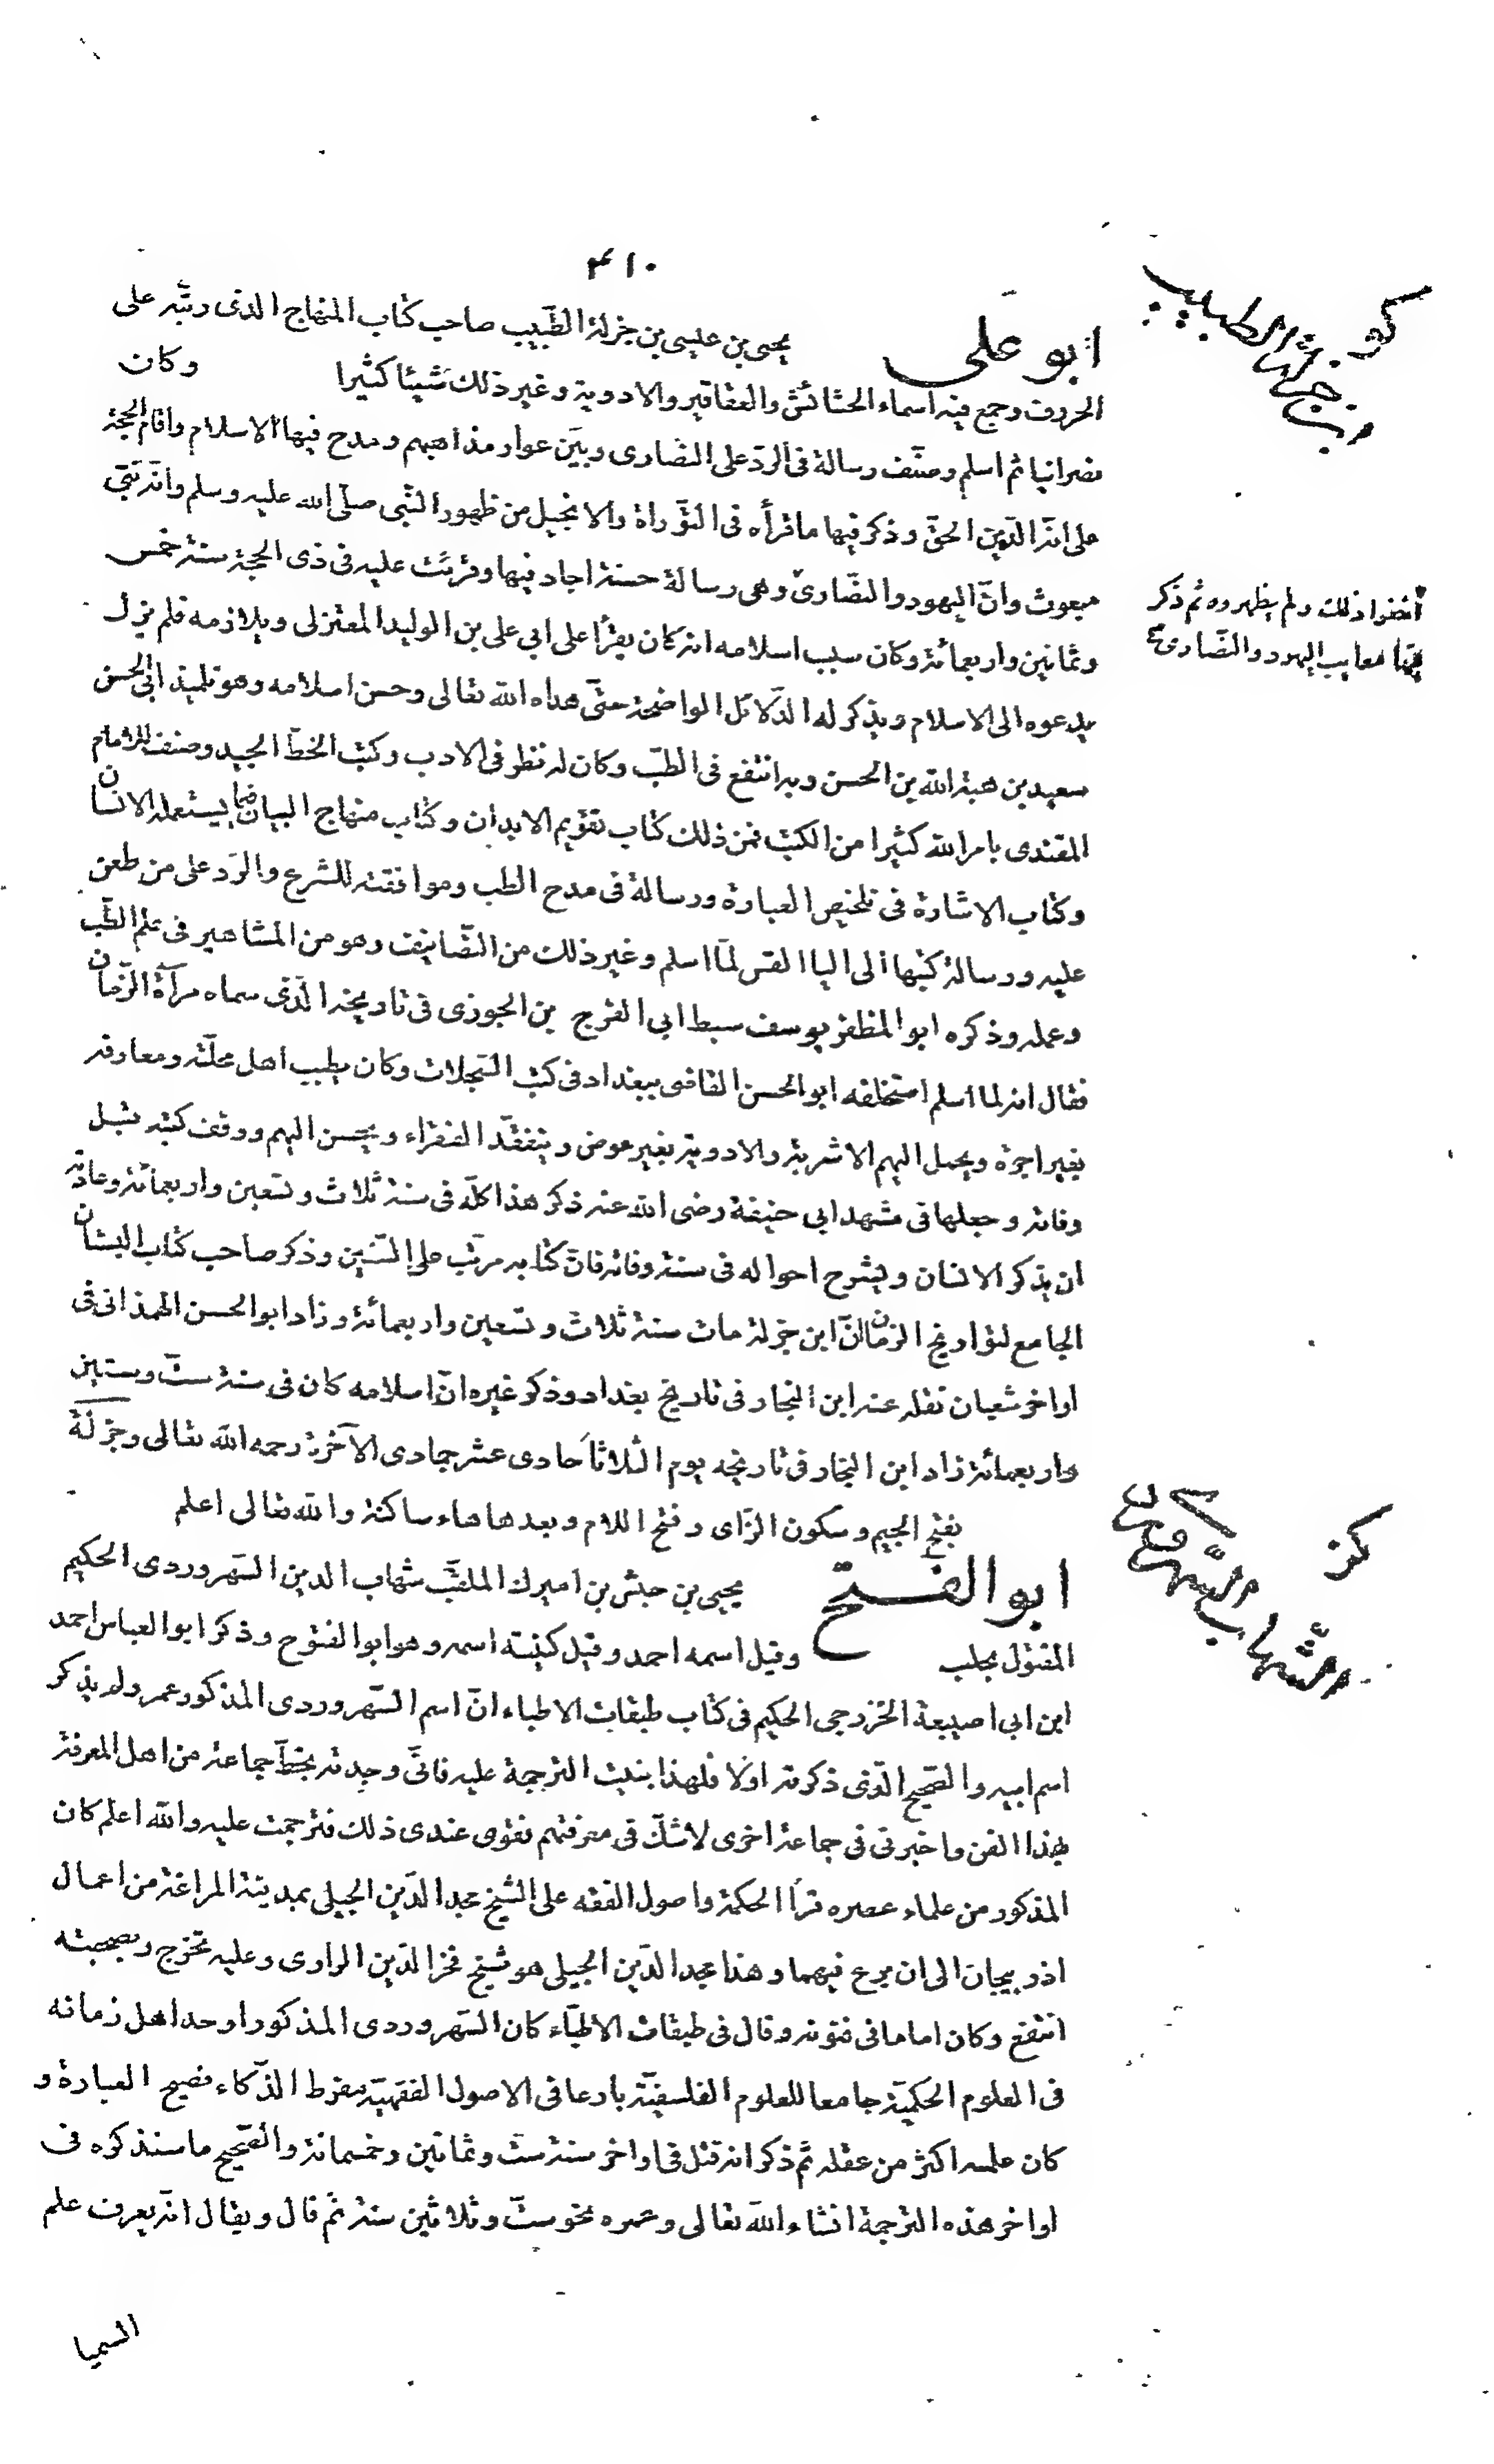 ٣١٠
كز
ابن جزلة الطبيب
ابو على يحيى بن عيسى بن جزلة الطبيب صاحب كتاب المنهاج الذى رتبه على
الحروف وجمع فيه اسماء الحشائش والعقاقير والادوية وغير ذلك شيئا كثيرا وكان
نصرانيا ثم اسلم وصنف رسالة فى الرد على النصارى وبين عوار مذاهبهم ومدح فيها الاسلام واقام الحجة
على انه الدين الحق وذكر فيها ما قرأه فى التوراة والانجيل من ظهور النبى صلى الله عليه وسلم وانه نبى
مبعوث وان اليهود والنصارى وهى رسالة حسنة اجاد فيها وقرئت عليه فى ذى الحجة سنة خمس
أخفوا ذلك ولم يظهروه ثم ذكر
فيها معايب اليهود والنصارى صح
وثمانين واربعمائة وكان سبب اسلامه انه كان يقرأ على ابي على بن الوليد المعتزلى ويلازمه فلم يزل
يدعوه الى الاسلام ويذكر له الدلائل الواضحة حتى هداه الله تعالى وحسن اسلامه وهو تلميذ ابى الحسن
سعيد بن هبة الله بن الحسن وبه انتفع فى الطب وكان له نظر فى الادب وكتب الخط الجيد وصنف للامام
المقتدى بامر الله كثيرا من الكتب فمن ذلك كتاب تقويم الابدان وكتاب منهاج البيان فيما يستعمله الانسان
وكتاب الاشارة فى تلخيص العبارة ورسالة فى مدح الطب وموافقته للشرع والرد على من طعن
عليه ورسالة كتبها الى اليا القس لما اسلم وغير ذلك من التصانيف وهو من المشاهير فى علم الطب
وعمله وذكره ابو المظفر يوسف سبط ابى الفرج بن الجوزى فى تاريخه الذى سماه مرآة الزمان
فقال انه لما اسلم استخلفه ابو الحسن القاضى ببغداد فى كتب السجلات وكان يطبب اهل محلته ومعارفه
بغير اجرة ويحمل اليهم الاشربة والادوية بغير عوض ويتفقد الفقراء ويحسن اليهم ووقف كتبه قبل
وفاته وجعلها فى مشهد ابى حنيفة رضى الله عنه ذكر هذا كله فى سنة ثلاث وتسعين واربعمائة وعادته
ان يذكر الانسان ويشرح احواله فى سنة وفاته فان كتابه مرتب على السنين وذكر صاحب كتاب البستان
الجامع لتواريخ الزمان ان ابن جزلة مات سنة ثلاث وتسعين واربعمائة وزاد ابو الحسن الهمذانى فى
اواخر شعبان نقله عنه ابن النجار فى تاريخ بغداد وذكر غيره ان اسلامه كان فى سنة ست وستين
واربعمائة زاد ابن النجار فى تاريخه يوم الثلاثا حادى عشر جمادى الآخرة رحمه الله تعالى وجزلة
بفتح الجيم وسكون الزاى وفتح اللام وبعدها هاء ساكنة والله تعالى اعلم
كز
الشهاب السهروردى
ابو الفتح يحيى بن حبش بن اميرك الملقب شهاب الدين السهروردى الحكيم
المقتول بحلب وقيل اسمه احمد وقيل كنيته اسمه وهو ابو الفتوح وذكر ابو العباس احمد
ابن ابى اصيبعة الخزرجى الحكيم فى كتاب طبقات الاطباء ان اسم السهروردى المذكور عمر ولم يذكر
اسم ابيه والصحيح الذى ذكرته اولا فلهذا بنيت الترجمة عليه فانى وجدته بخط جماعة من اهل المعرفة
بهذا الفن واخبرنى فى جماعة اخرى لاشك فى معرفتهم فقوى عندى ذلك فترجمت عليه والله اعلم كان
المذكور من علماء عصره قرأ الحكمة واصول الفقه على الشيخ مجد الدين الجيلى بمدينة المراغة من اعمال
اذربيجان الى ان برع فيهما وهذا مجد الدين الجيلى هو شيخ فخر الدين الرازى وعليه تخرج وبصحبته
انتفع وكان اماما فى فنونه وقال فى طبقات الاطباء كان السهروردى المذكور اوحد اهل زمانه
فى العلوم الحكمية جامعا للعلوم الفلسفية بارعا فى الاصول الفقهية مفرط الذكاء فصيح العبارة و
كان علمه اكثر من عقله ثم ذكر انه قتل فى اواخر سنة ست وثمانين وخمسمائة والصحيح ما سنذكره فى
اواخر هذه الترجمة انشاء الله تعالى وعمره نحو ست وثلاثين سنة ثم قال ويقال انه يعرف علم
السميا